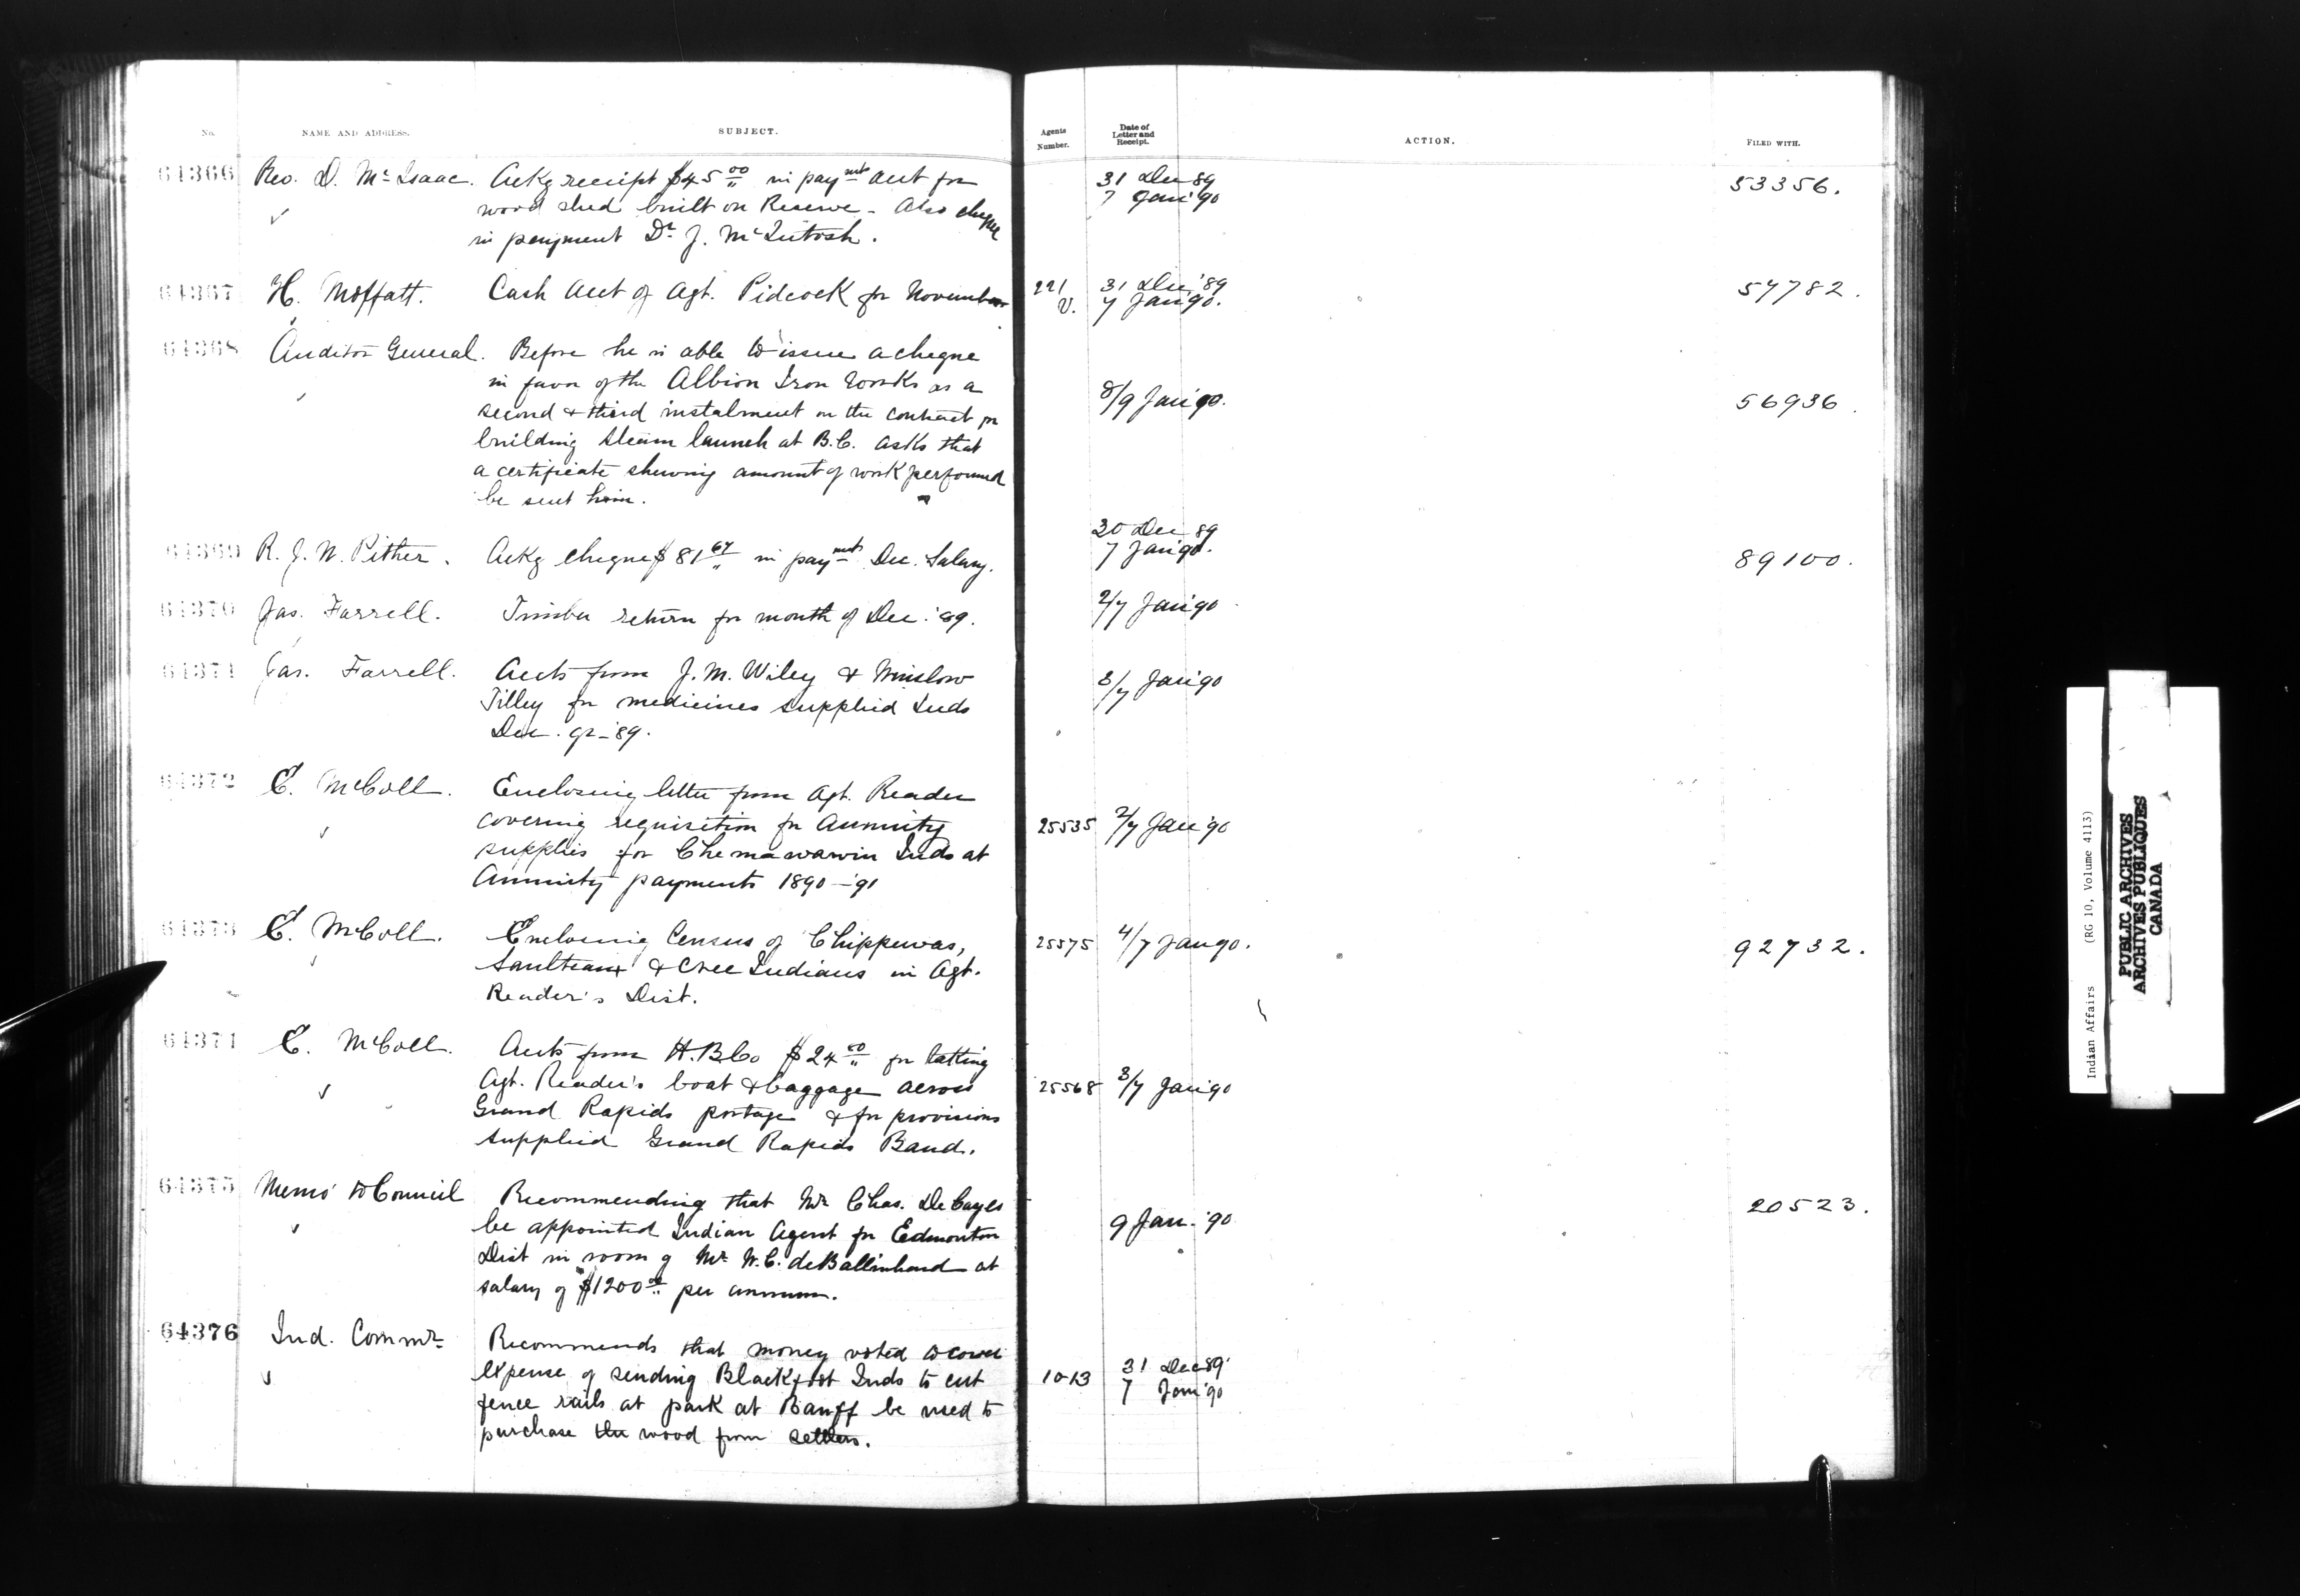 No. NAME AND ADDRESS. SUBJECT. Agents Number. Date of Letter and Receipt. ACTION. FILED WITH.
64366 Rev. D. McIsaac. Ackg receipt $45.00 in paymt acct for 31 Dec 89 53356.
wood shed built on Reserve - Also cheque 7 Jan '90
in payment Dr. J. McIntosh.
64367 H. Moffatt. Cash Acct of Agt. Pidcock for November 221 31 Dec '89 54782.
V. 7 Jan '90.
64368 Auditor General. Before he is able to issue a cheque
in favor of the Albion Iron Works as a 8/9 Jan '90. 56936.
second & third instalment on the contract for
building steam launch at B.C. asks that
a certificate shewing amount of work performed
be sent him.
30 Dec 89
64369 R. J. N. Pither. Ackg cheque $81.67 in paymt Dec. Salary. 7 Jan '90. 89100.
64370 Jas. Farrell. Timber return for month of Dec. '89. 2/7 Jan '90
64371 Jas. Farrell. Accts from J. M. Wiley & Winslow 3/7 Jan '90
Tilley for medicines supplied Inds
Dec. qr - '89.
64372 E. McColl. Enclosing letter from Agt. Reader
covering requisition for Annuity 25535 2/7 Jan '90
supplies for Chemawawin Inds at
Annuity payments 1890-'91
64373 E. McColl. Enclosing Census of Chippewas, 25575 4/7 Jan '90. 92732.
Saulteaux & Cree Indians in Agt.
Reader's Dist.
64374 E. McColl. Accts from H.B.Co $24.00 for
Agt. Reader's boat & baggage across 25568 3/7 Jan '90
Grand Rapids portage & for provisions
supplied Grand Rapids Band.
64375 Memo to Council Recommending that Mr. Chas. De Cazes 20523.
be appointed Indian Agent for Edmonton 9 Jan. '90
Dist in room of Mr. W. C. deBallinhard at
salary of $1200.00 per annum.
64376 Ind. Commr. Recommends that money voted to cover 31 Dec 89
expense of sending Blackfoot Inds to cut 1013 7 Jan '90
fence rails at park at Banff be used to
purchase the wood from settlers.
Indian Affairs (RG 10, Volume 4113)
PUBLIC ARCHIVES
ARCHIVES PUBLIQUES
CANADA